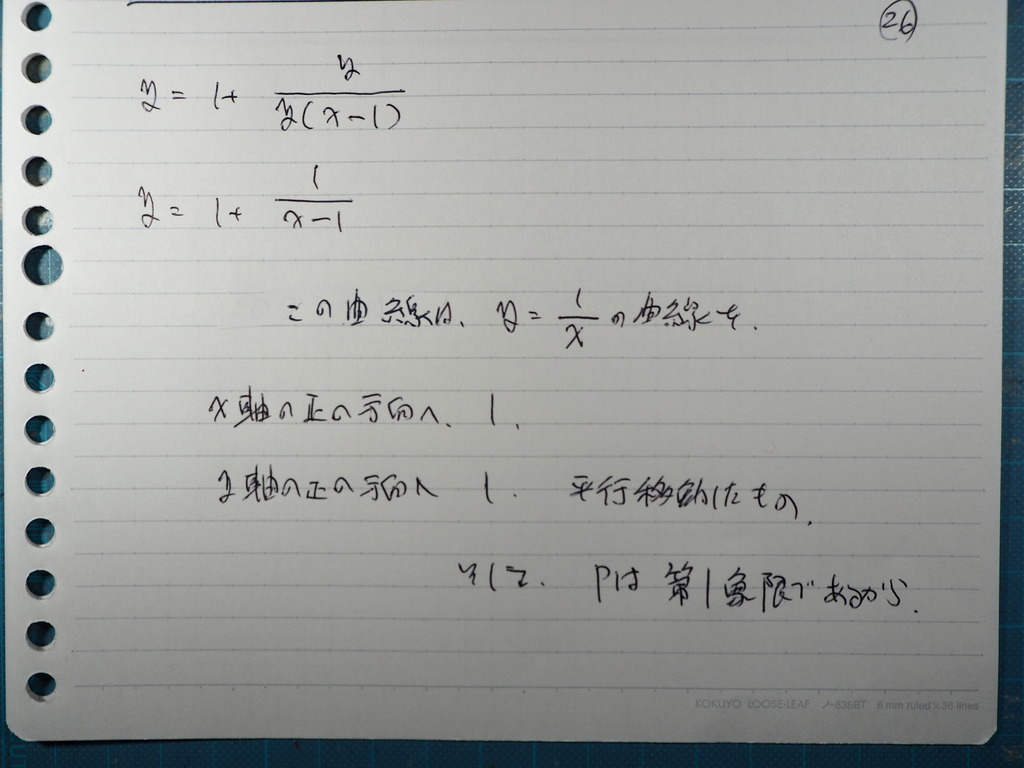 26
y = 1 + y / y(x-1)
y = 1 + 1 / x-1
この曲線は、 y = 1/x の曲線を、
x軸の正の方向へ、 1、
y軸の正の方向へ 1、 平行移動したもの、
そして、 Pは第1象限であるから、
KOKUYO LOOSE-LEAF ノ-836BT 6 mm ruled×36 lines